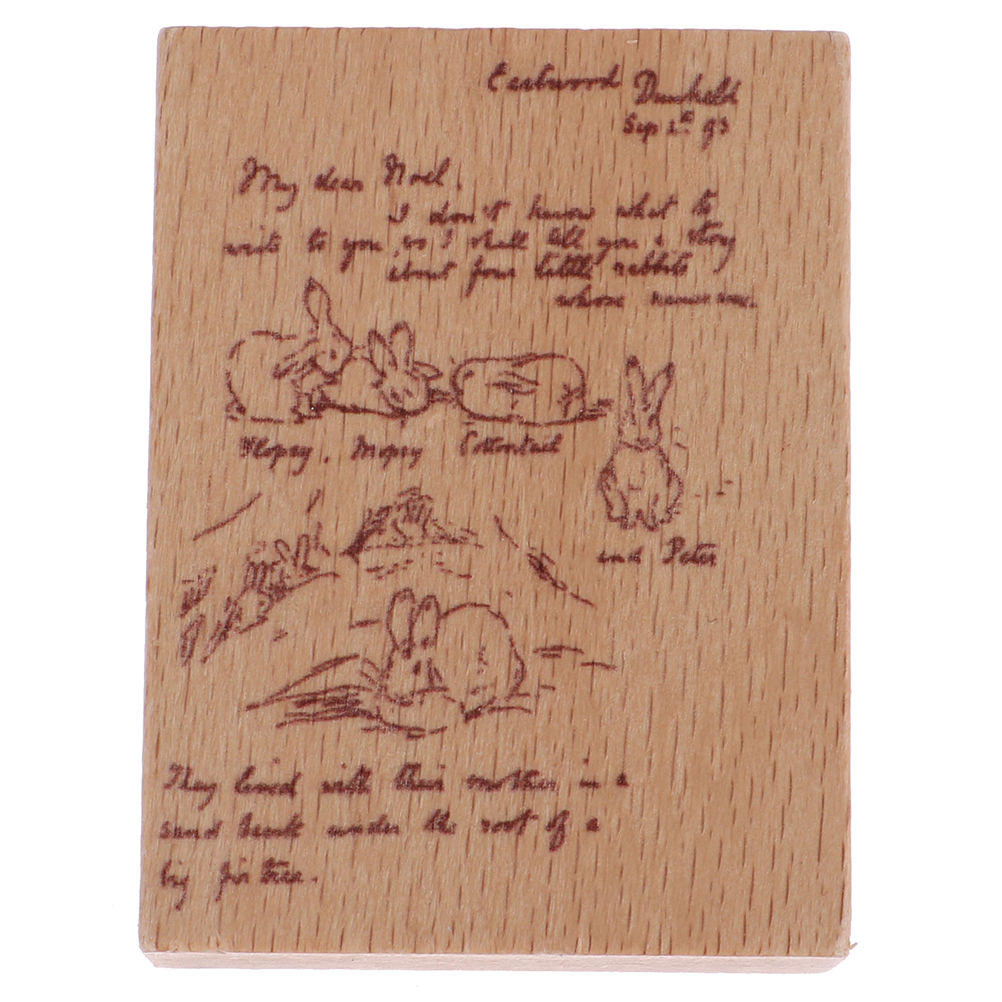 Eastwood Dunkeld
Sep 4th 93
My dear Noel,
I don't know what to
write to you, so I shall tell you a story
about four little rabbits
whose names were
Flopsy, Mopsy Cottontail
and Peter
They lived with their mother in a
sand bank under the root of a
big fir tree.